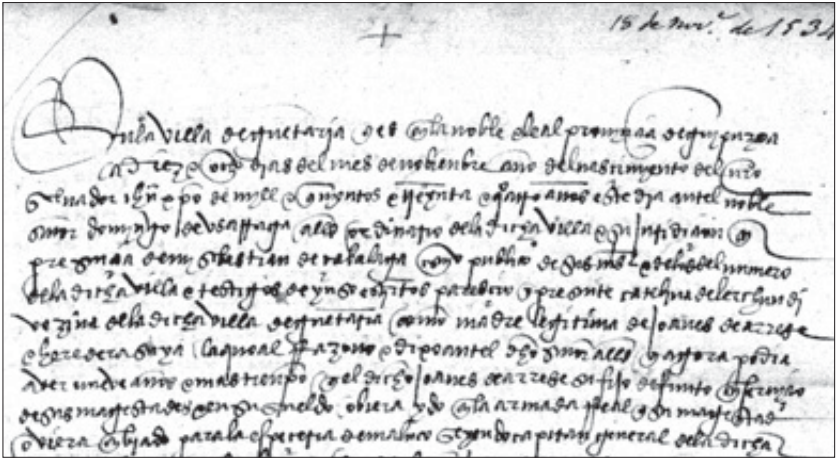 18 de nov.e de 1534
En la villa de guetaria ques en la noble e leal provinçia de guipuzcoa
a diez e ocho dias del mes de nobienbre año del nasçimiento del nro
salvador ihu xpo de mill e quinientos e treynta e quatro años este dia antel noble
señor domingo de usarraga alld hordinario de la dicha villa e su juridiçion en
presençia de my sebastian de çabalaga escrivano publico de sus mags e del del numero
de la dicha villa e testigos de yuso escritos pareçio y presente catelina de lerchundi
vezina de la dicha villa de guetaria como madre legitima de joanes de arrese
e heredera suya la qual rrazono e dixo antel dho señor alld q agora podia
aver nueve años e mas tienpo q el dicho joanes de arrese su fijo defunto en serviçio
de sus magestades y en su sueldo obiera ydo en la armada rreal q su magestad
oviera enbiado para la espeçeria de maluco seyendo capitan general de la dicha